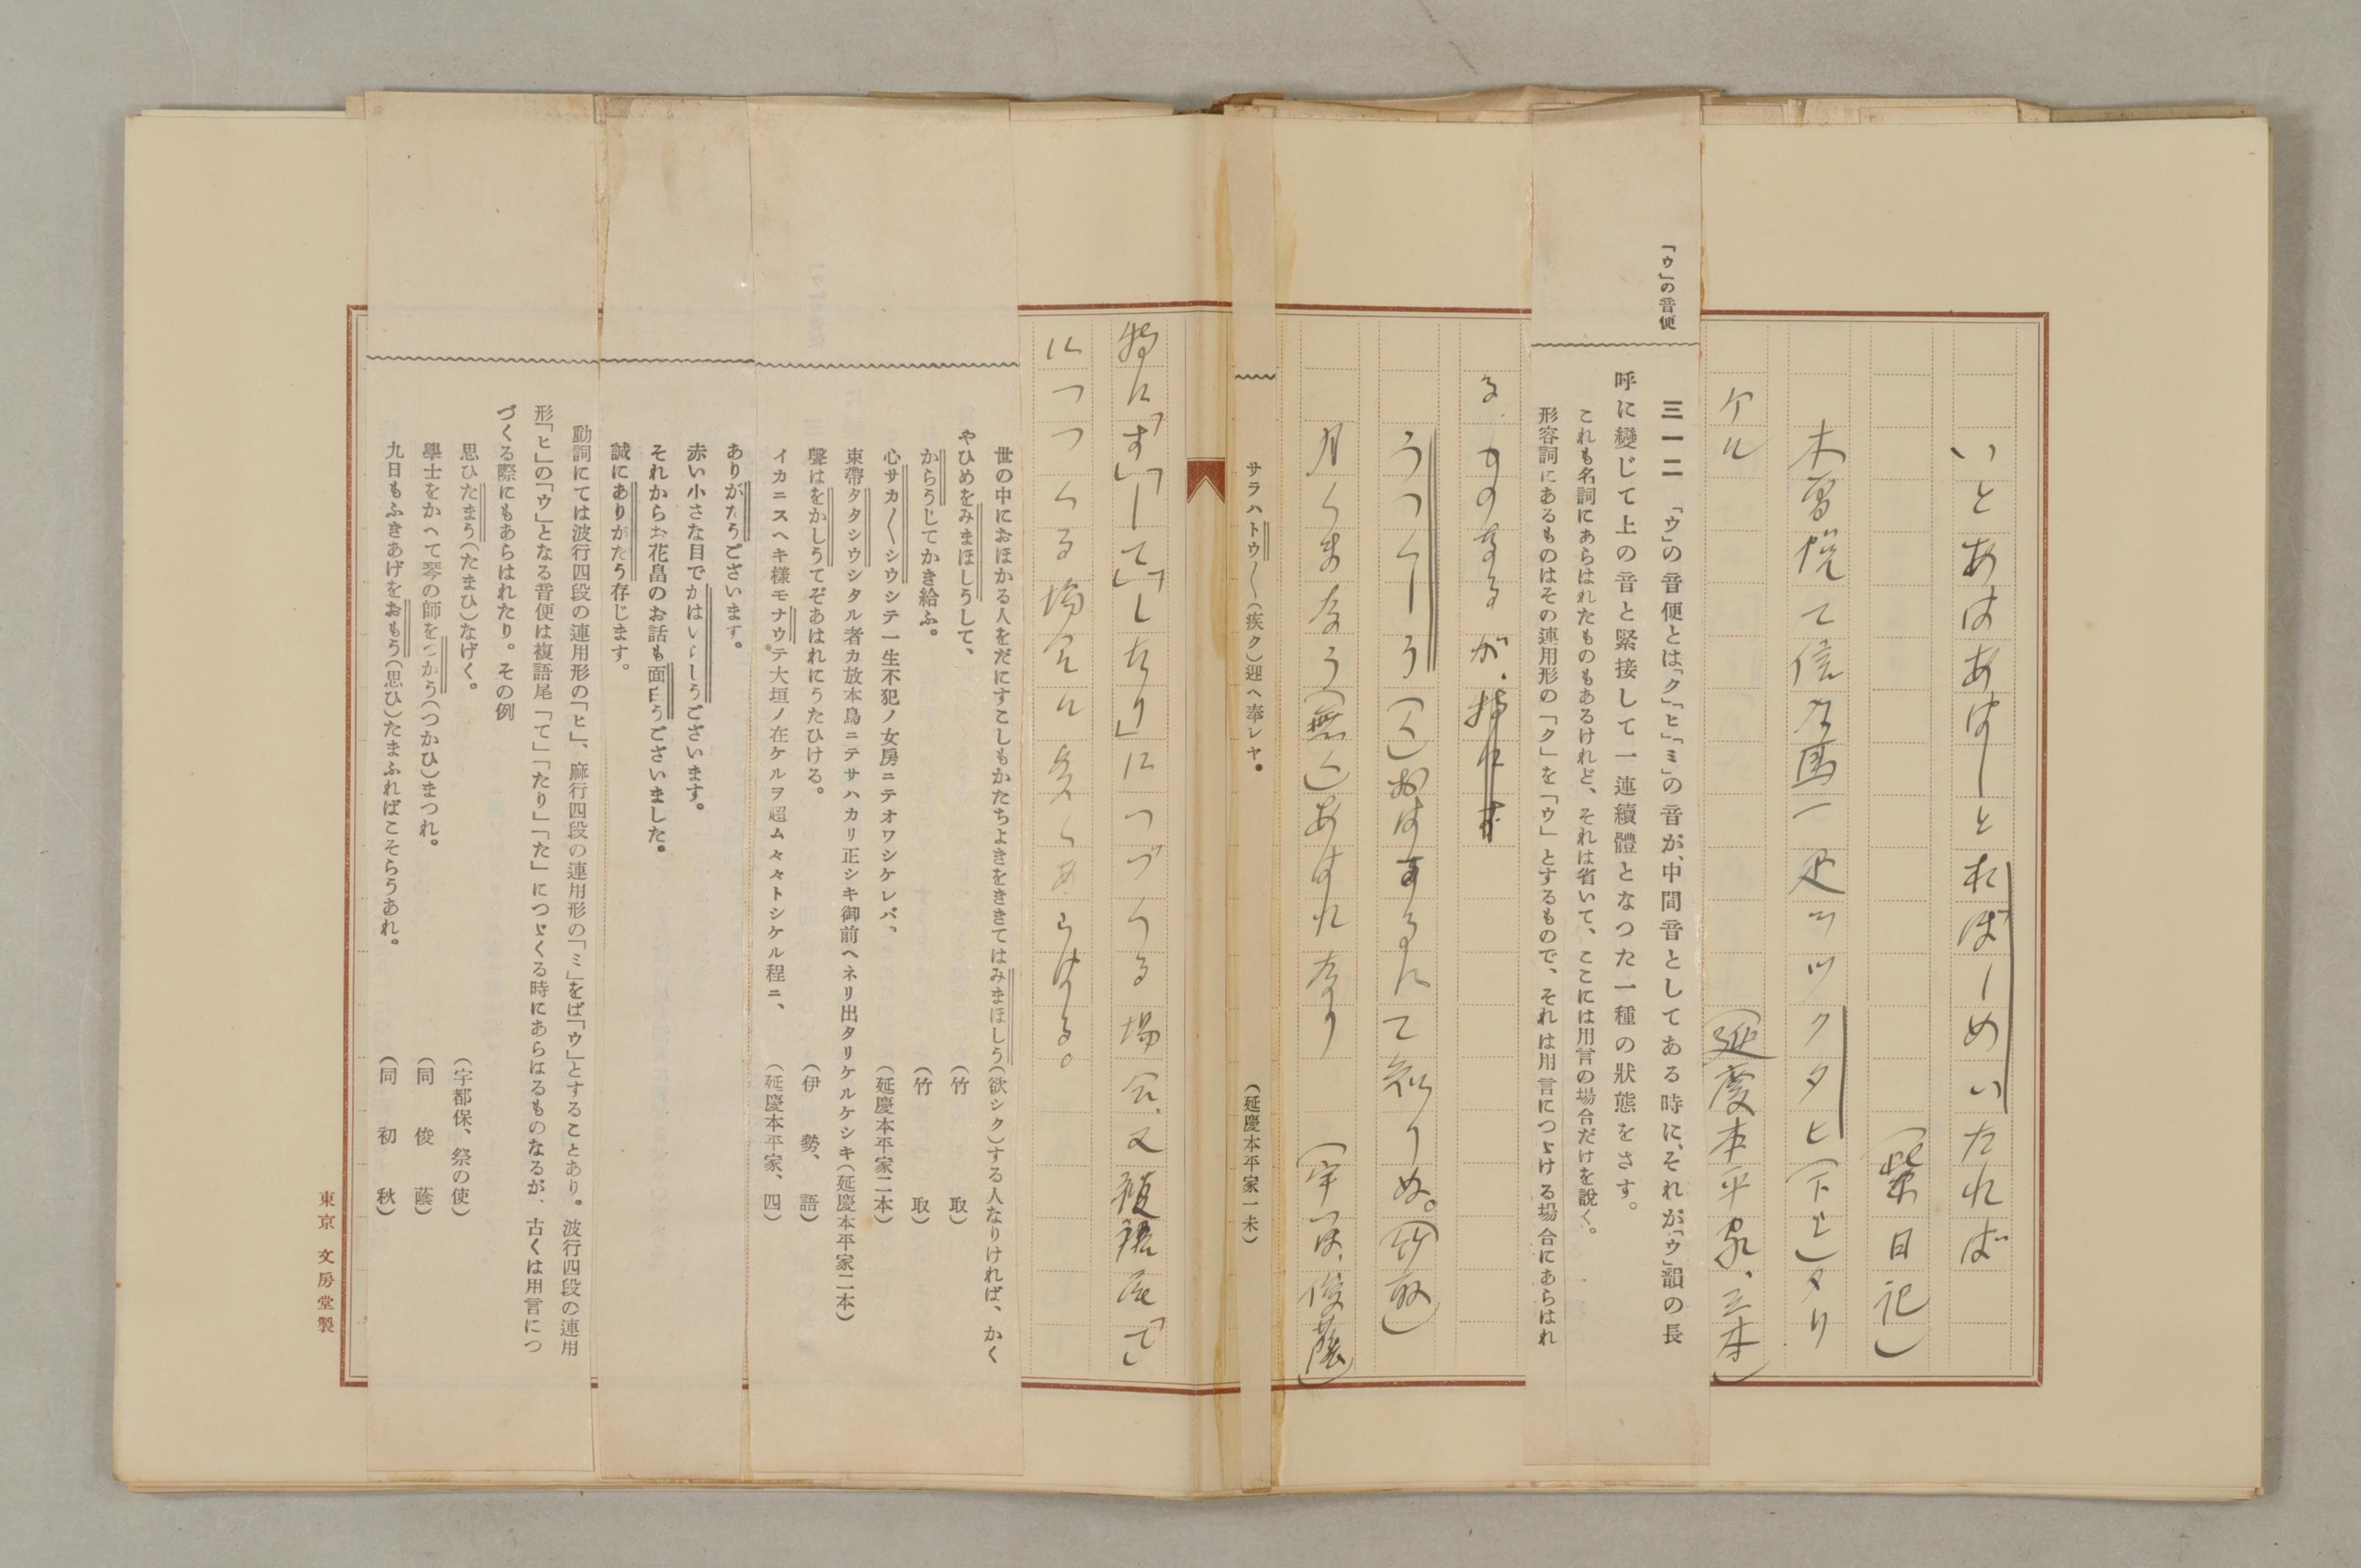 いとあはあはしとおぼしめいたれば
(紫日記)
木曽悦て信乃馬一疋ツツクタヒ(下し)タリ
ケル
(延慶本平家、三本)
「ウ」の音便
三一二 「ウ」の音便とは「ク」「ヒ」「ミ」の音が、中間音としてある時に、それが「ウ」韻の長
呼に變じて上の音と緊接して一連續體となつた一種の狀態をさす。
これも名詞にあらはれたものもあるけれど、それは省いて、ここには用言の場合だけを說く。
形容詞にあるものはその連用形の「ク」を「ウ」とするもので、それは用言につゞける場合にあらはれ
る。ものなるが、特にす
うつくしう(く)おはするにて知りぬ。(竹取)
月くまなう(無く)あはれなり
(宇つほ、俊蔭)
サラハトウ〱(疾ク)迎ヘ奉レヤ。
(延慶本平家一末)
特に「す」「して」「したり」につづくる場合、又複語尾「て」
につづくる場合に多くあらはる。
世の中におほかる人をだにすこしもかたちよきをききてはみまほしう(欲シク)する人なりければ、かく
やひめをみまほしうして、
(竹取)
からうじてかき給ふ。
(竹取)
心サカ〱シウシテ一生不犯ノ女房ニテオワシケレバ、
(延慶本平家二本)
束帶タタシウシタル者カ放本鳥ニテサハカリ正シキ御前ヘネリ出タリケルケシキ(延慶本平家二本)
聲はをかしうてぞあはれにうたひける。
(伊勢、語)
イカニスヘキ樣モナウテ大垣ノ在ケルヲ超ム々々トシケル程ニ、
(延慶本平家、四)
ありがたうございます。
赤い小さな目でかはいらしうございます。
それからお花畠のお話も面白うございました。
誠にありがたう存じます。
動詞にては波行四段の連用形の「ヒ」、麻行四段の連用形の「ミ」をば「ウ」とすることあり。波行四段の連用
形「ヒ」の「ウ」となる音便は複語尾「て」「たり」「た」につゞくる時にあらはるものなるが、古くは用言につ
づくる際にもあらはれたり。その例
思ひたまう(たまひ)なげく。
(宇都保、祭の使)
學士をかへて琴の師をつかう(つかひ)まつれ。
(同 俊蔭)
九日もふきあげをおもう(思ひ)たまふればこそらうあれ。
(同 初秋)
東京 文房堂製